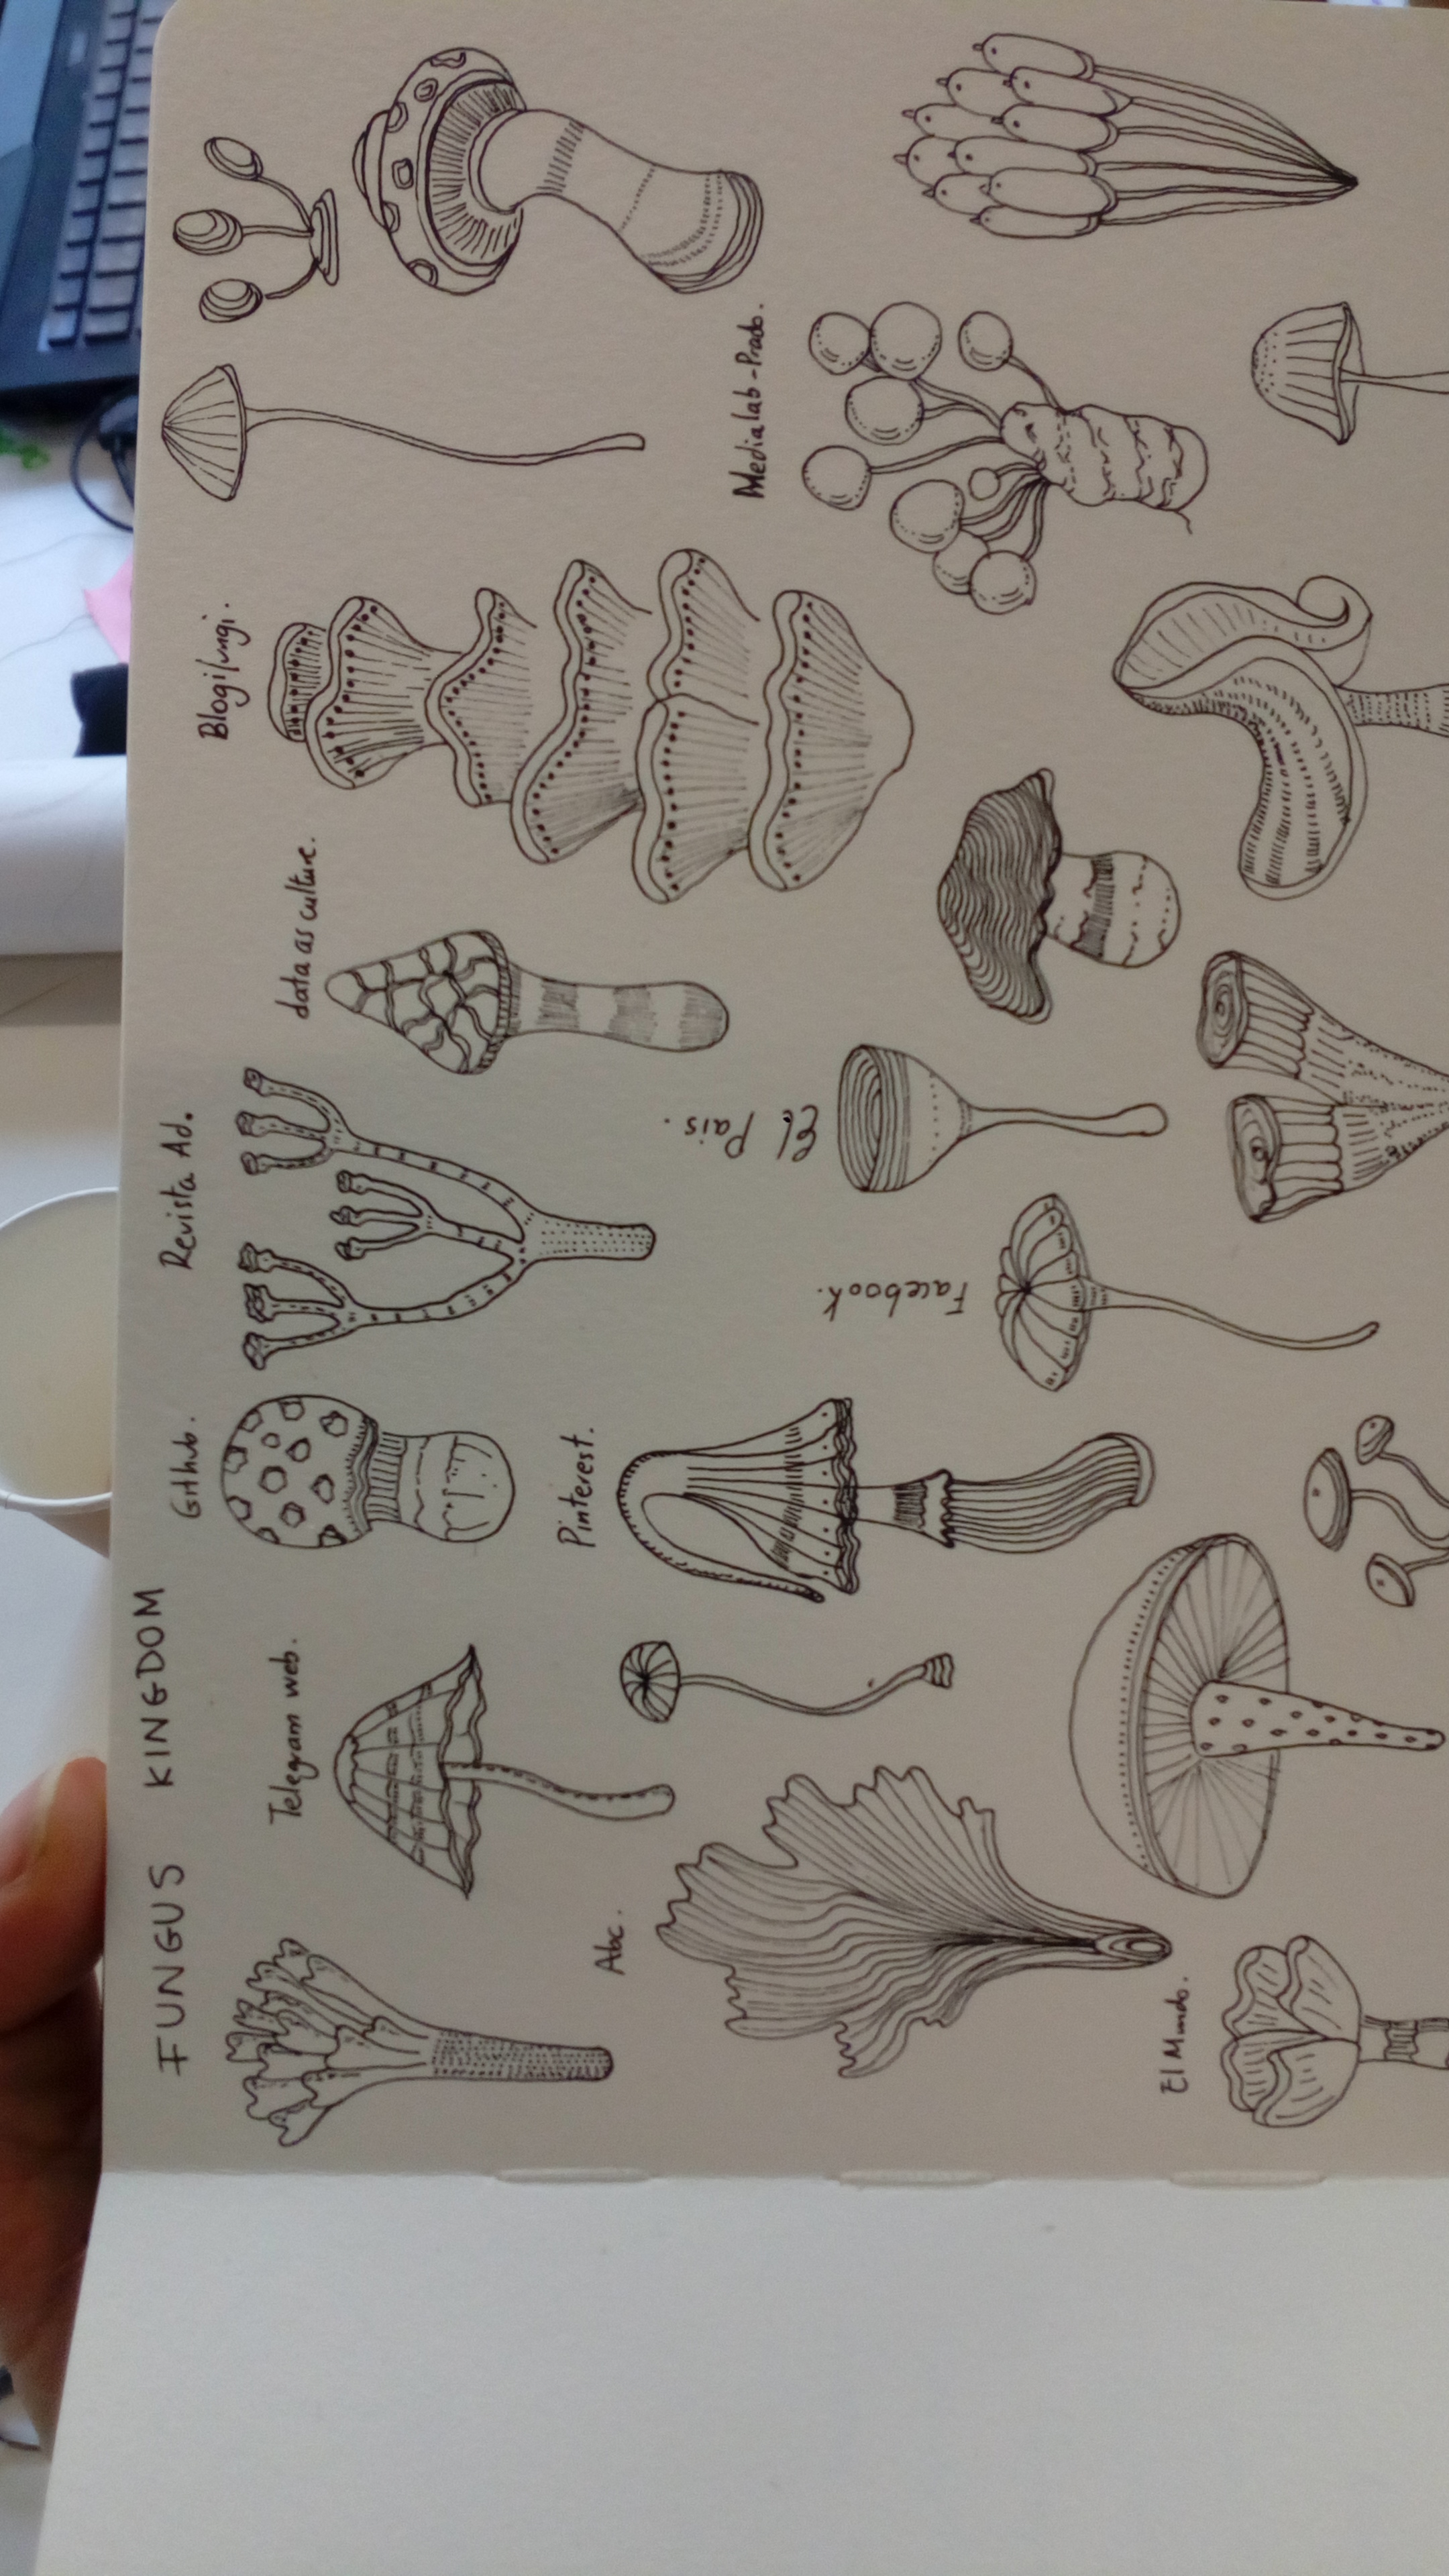 FUNGUS KINGDOM
Telegram web.
Github.
Revista Ad.
data as culture.
Blogifungi.
Abc.
Pinterest.
Facebook.
El Pais.
Medialab-Prado.
El Mundo.